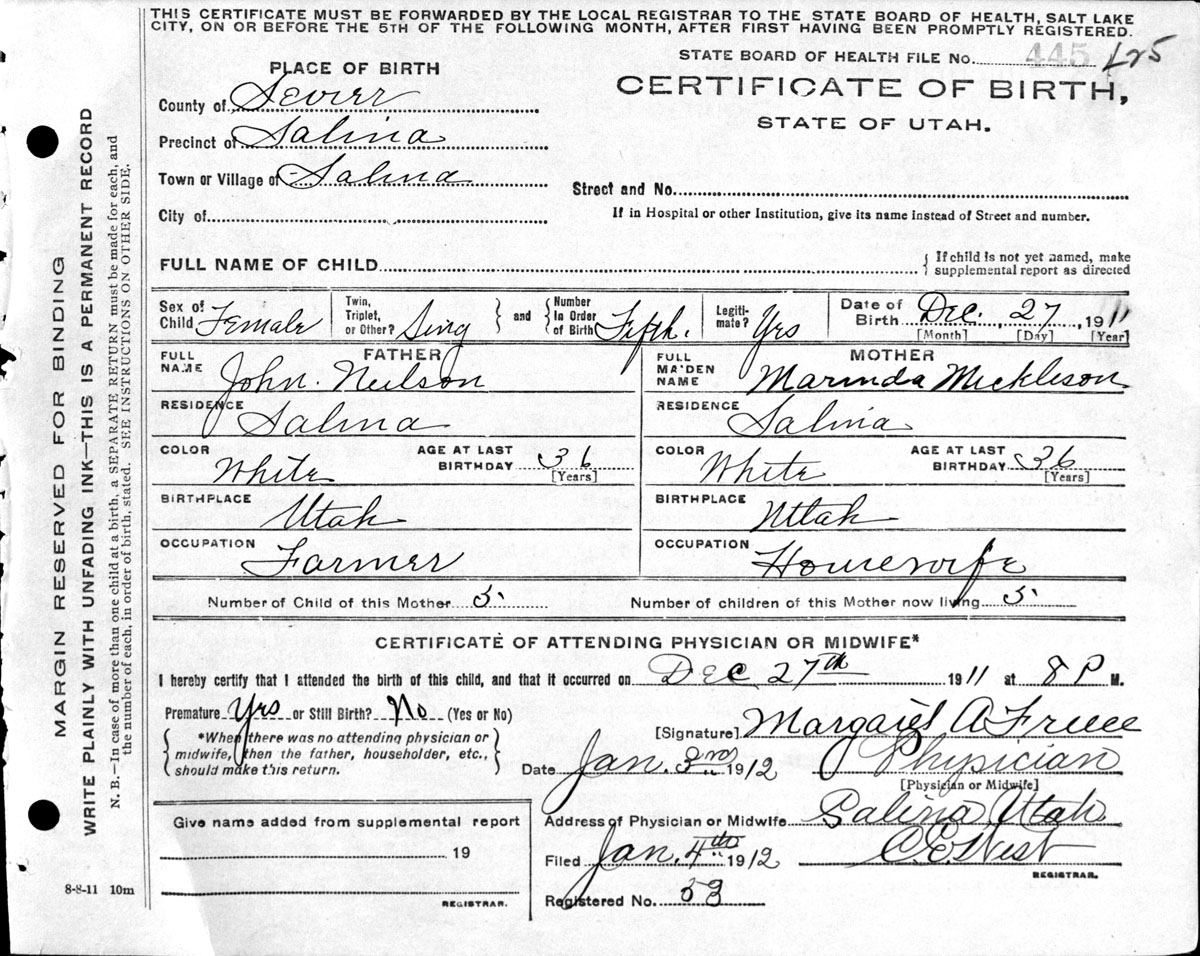 THIS CERTIFICATE MUST BE FORWARDED BY THE LOCAL REGISTRAR TO THE STATE BOARD OF HEALTH, SALT LAKE
CITY, ON OR BEFORE THE 5TH OF THE FOLLOWING MONTH, AFTER FIRST HAVING BEEN PROMPTLY REGISTERED.
STATE BOARD OF HEALTH FILE No. 445
PLACE OF BIRTH
CERTIFICATE OF BIRTH,
STATE OF UTAH.
County of Sevier
Precinct of Salina
Town or Village of Salina
Street and No.
City of
If in Hospital or other Institution, give its name instead of Street and number.
FULL NAME OF CHILD { If child is not yet named, make
supplemental report as directed
Sex of Child Female Twin, Triplet, or Other? Sing } and { Number In Order of Birth Fifth. Legiti-mate? Yes Date of Birth Dec. 27, 1911
[Month] [Day] [Year]
FATHER MOTHER
FULL NAME John Neilson FULL MAIDEN NAME Marinda Mickleson
RESIDENCE Salina RESIDENCE Salina
COLOR White AGE AT LAST BIRTHDAY 36 [Years] COLOR White AGE AT LAST BIRTHDAY 36 [Years]
BIRTHPLACE Utah BIRTHPLACE Utah
OCCUPATION Farmer OCCUPATION Housewife
Number of Child of this Mother 5 Number of children of this Mother now living 5
CERTIFICATE OF ATTENDING PHYSICIAN OR MIDWIFE*
I hereby certify that I attended the birth of this child, and that it occurred on Dec 27th 1911 at 8 P M.
Premature Yes or Still Birth? No (Yes or No)
[Signature] Margaret A Freece
{ *When there was no attending physician or
midwife, then the father, householder, etc.,
should make this return. }
Date Jan. 3rd 1912 Physician
[Physician or Midwife]
Address of Physician or Midwife Salina Utah
Filed Jan. 4th 1912 C.E. West
REGISTRAR.
Registered No. 53
Give name added from supplemental report
19
REGISTRAR.
8-8-11 10m
MARGIN RESERVED FOR BINDING
WRITE PLAINLY WITH UNFADING INK—THIS IS A PERMANENT RECORD
N. B.—In case of more than one child at a birth, a SEPARATE RETURN must be made for each, and
the number of each, in order of birth, stated. SEE INSTRUCTIONS ON OTHER SIDE.